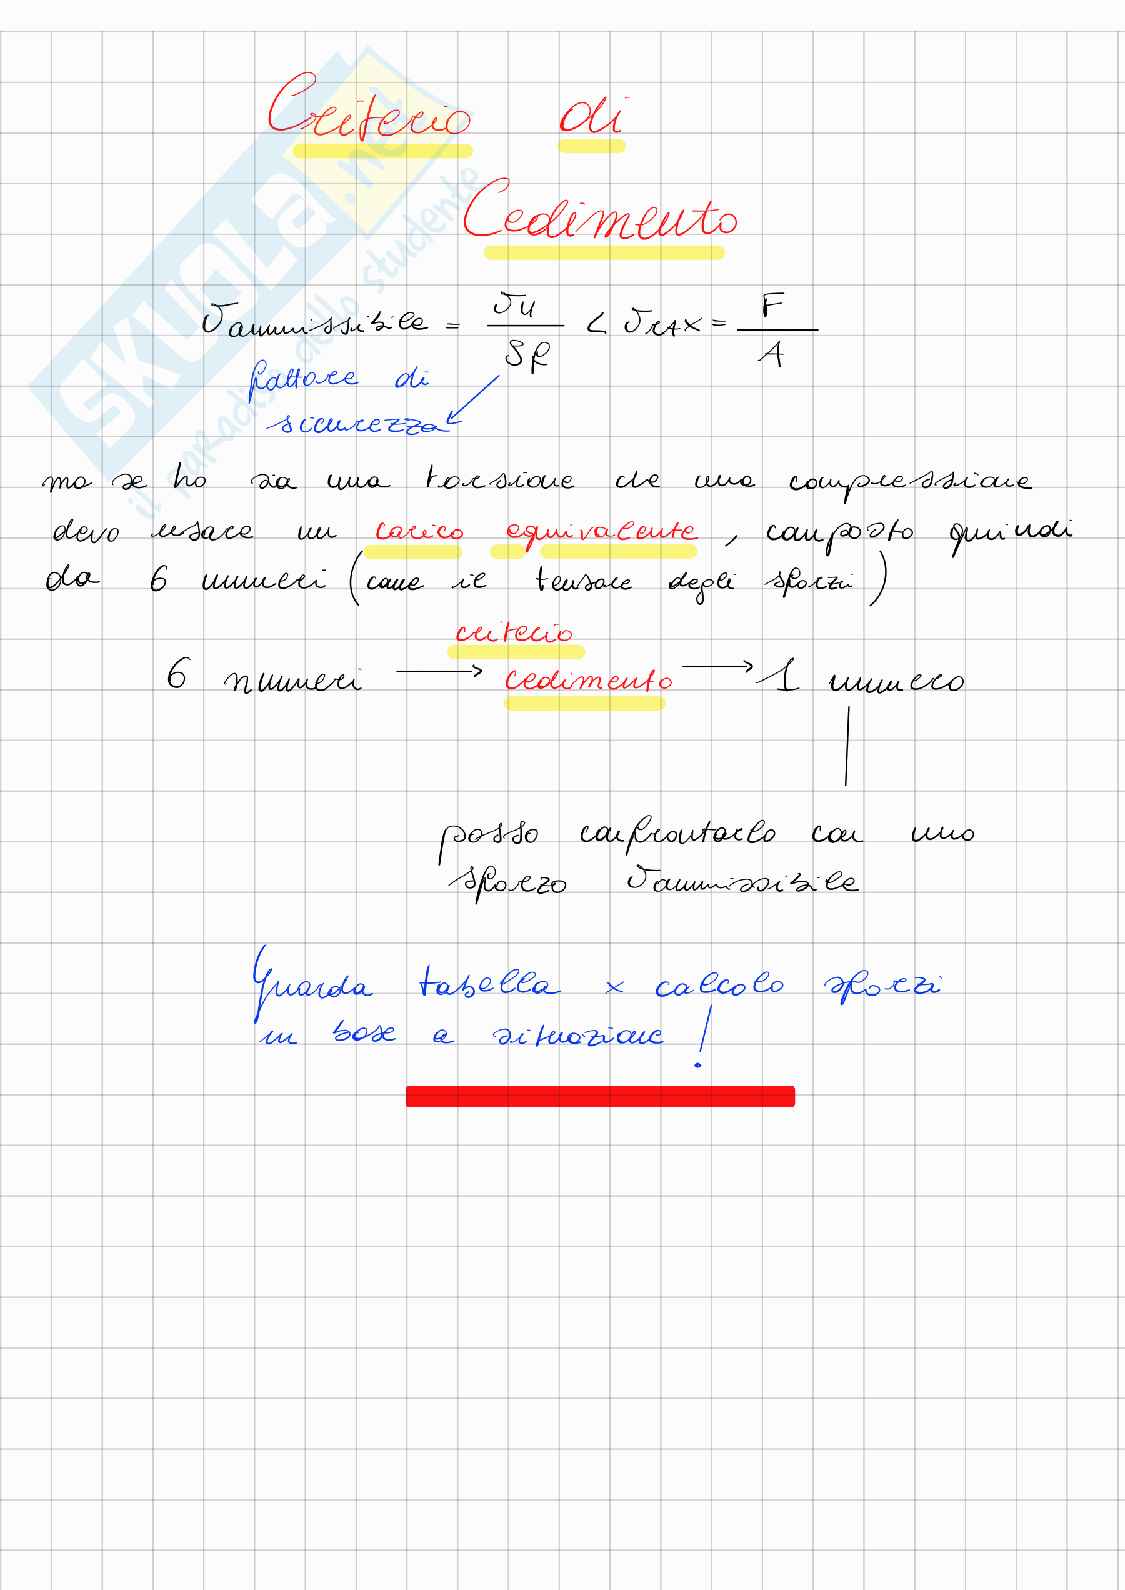 Criterio di
Cedimento
σammissibile = σu / Sf < σMAX = F / A
fattore di
sicurezza
ma se ho sia una torsione che una compressione
devo usare un carico equivalente, composto quindi
da 6 numeri (come il tensore degli sforzi)
criterio
6 numeri → cedimento → 1 numero
posso confrontarlo con uno
sforzo σammissibile
Guarda tabella x calcolo sforzi
in base a situazione!
SKUOLA.net
il paradiso dello studente